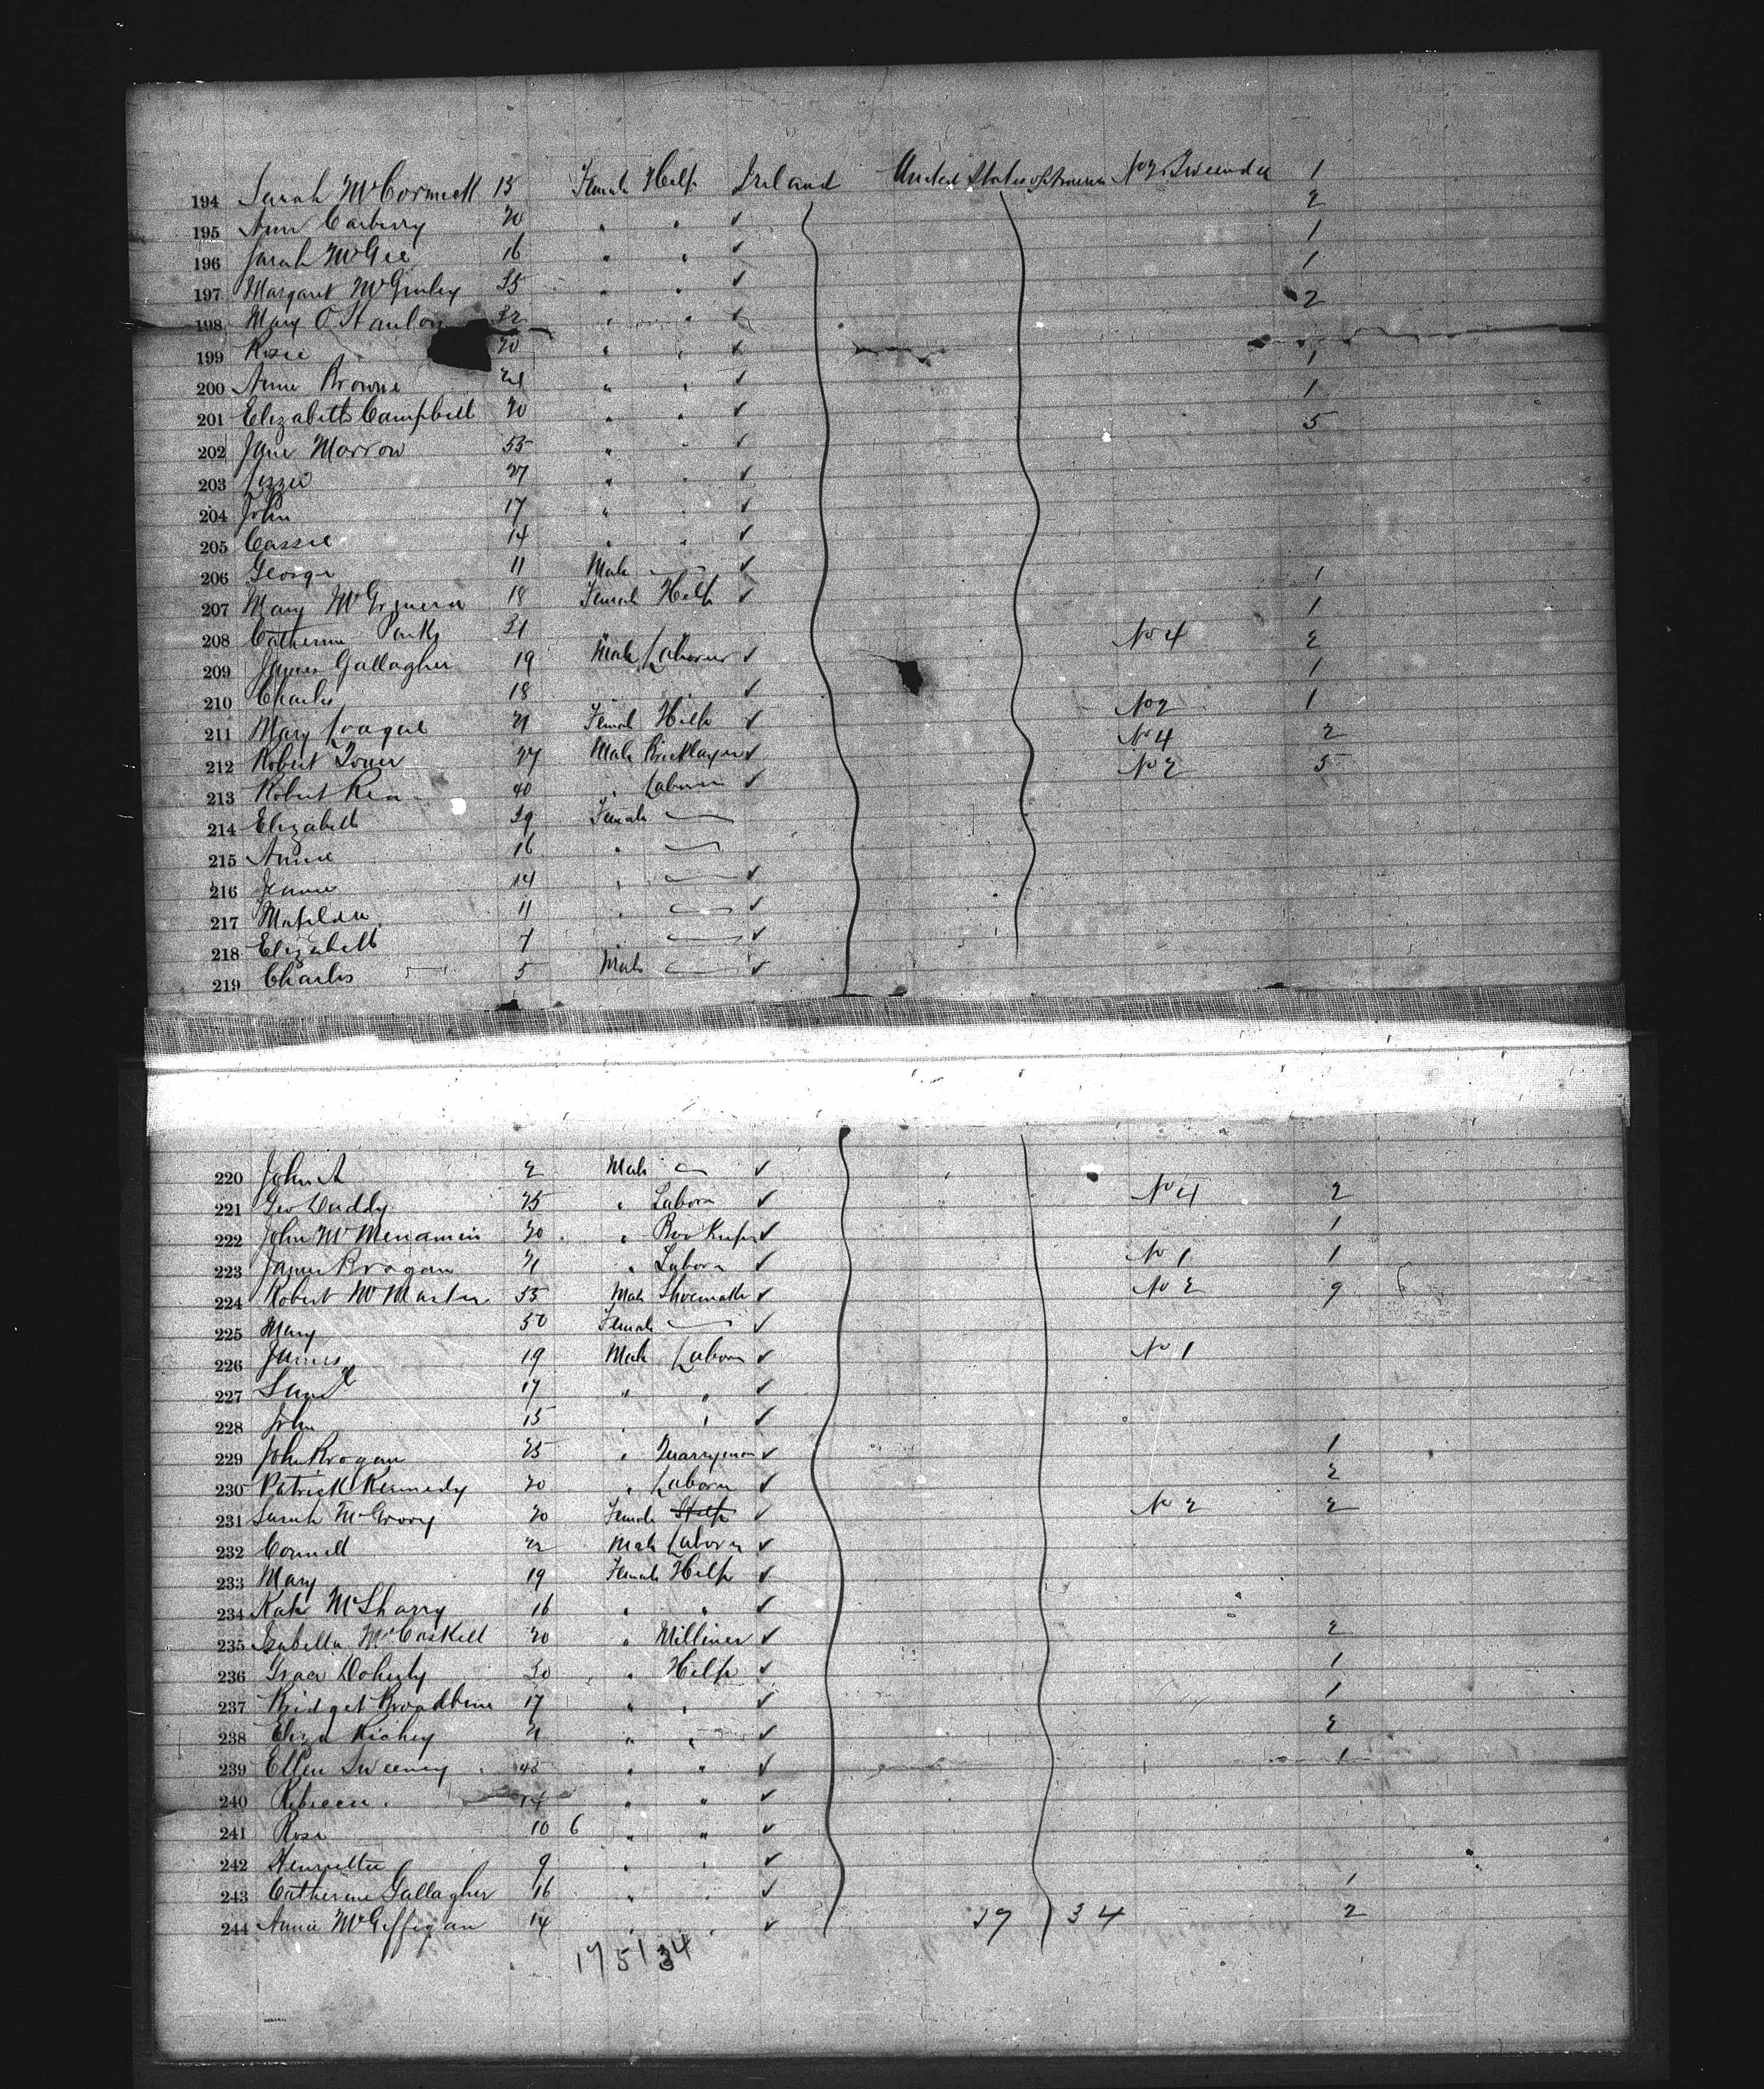 194 Sarah McCormick 15 Female Help Ireland United States of America No 2 1
195 Ann Carberry 20 " " ✓ 2
196 Sarah McGee 16 " " ✓ 1
197 Margaret McGinley 35 " " ✓ 1
198 Mary O'Hanlon 32 " " ✓ 2
199 Rosie 20 " " ✓ 1
200 Annie Browne 24 " " ✓ 1
201 Elizabeth Campbell 20 " " ✓ 5
202 Jane Morrow 55 " " ✓
203 Lizzie 27 " " ✓
204 John 17 " " ✓
205 Cassie 14 " " ✓
206 George 11 Male — ✓
207 Mary 18 Female Help ✓ 1
208 Catherine Parks 21 " " 1
209 James Gallagher 19 Male Laborer ✓ No 4 2
210 Charles 18 " " ✓ 1
211 Mary Loague 21 Female Help ✓ No 2 1
212 Robert 27 Male Bricklayer ✓ No 4 2
213 Robert Rea 40 " Laborer ✓ No 2 5
214 Elizabeth 39 Female —
215 Annie 16 " —
216 Jennie 14 " — ✓
217 Matilda 11 " — ✓
218 Elizabeth 7 — ✓
219 Charles 5 Male — ✓
220 John A 2 Male — ✓
221 Geo Duddy 25 " Labor ✓ No 4 2
222 John McMenamin 20 " ✓ 1
223 James Brogan 21 " Labor ✓ No 1 1
224 Robert McMaster 55 Male Shoemaker ✓ No 2 9
225 Mary 50 Female — ✓
226 James 19 Male Labor ✓ No 1
227 Saml 17 " " ✓
228 John 15 " ✓
229 John Brogan 25 " Quarryman ✓ 1
230 Patrick Kennedy 20 " Labor ✓ 2
231 Sarah McGroory 20 Female Help ✓ No 2 2
232 Connell 22 Male Labor ✓
233 Mary 19 Female Help ✓
234 Kate McSharry 16 " " ✓
235 Isabella McCaskell 20 " Milliner ✓ 2
236 Grace Doherty 30 " Help ✓ 1
237 Bridget 17 " " ✓ 1
238 Eliza Richey 21 " " ✓ 2
239 Ellen Sweeney 45 " " ✓ 1
240 Rebecca 14 " " ✓
241 Rose 10 6 " " ✓
242 Henrietta 9 " " ✓
243 Catherine Gallagher 16 " " ✓ 1
244 Annie McGeffigan 14 " " ✓ 2
34